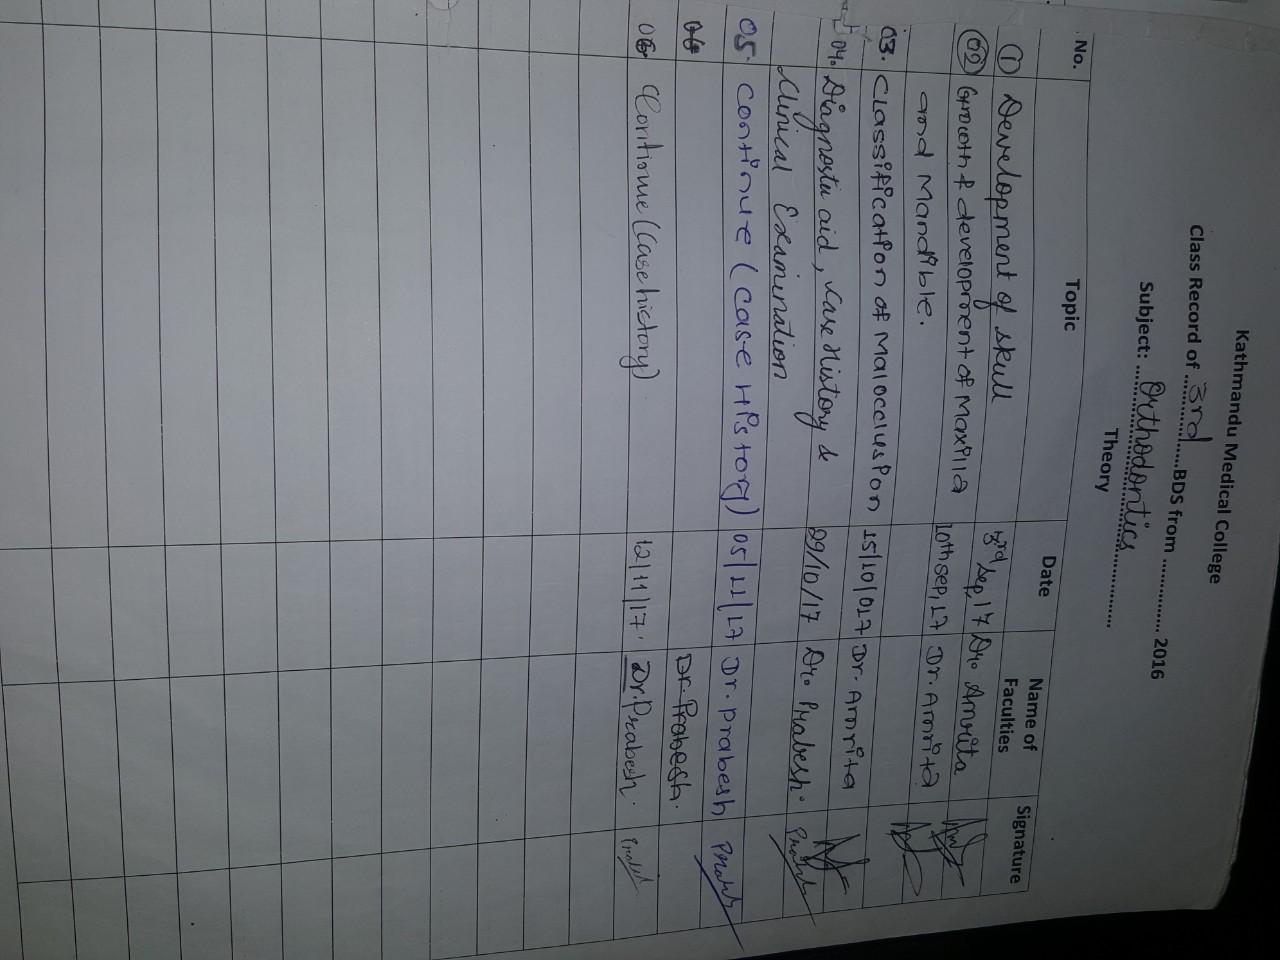 Kathmandu Medical College
Class Record of ....3rd......BDS from ................ 2016
Subject: ....Orthodontics............
Theory
No. Topic Date Name of Faculties Signature
① Development of skull 3rd sep, 17 Dr. Amrita
02 Growth & development of Maxilla 10th sep, 17 Dr. Amrita
and Mandible.
03. Classification of Malocclusion 15/10/017 Dr. Amrita
04. Diagnostic aid, Case History & 29/10/17 Dr. Prabesh.
Clinical Examination
05. continue (case History) 05/11/17 Dr. prabesh
06 Dr. Prabesh.
06 Continue (Case history) 12/11/17 Dr. Prabesh.